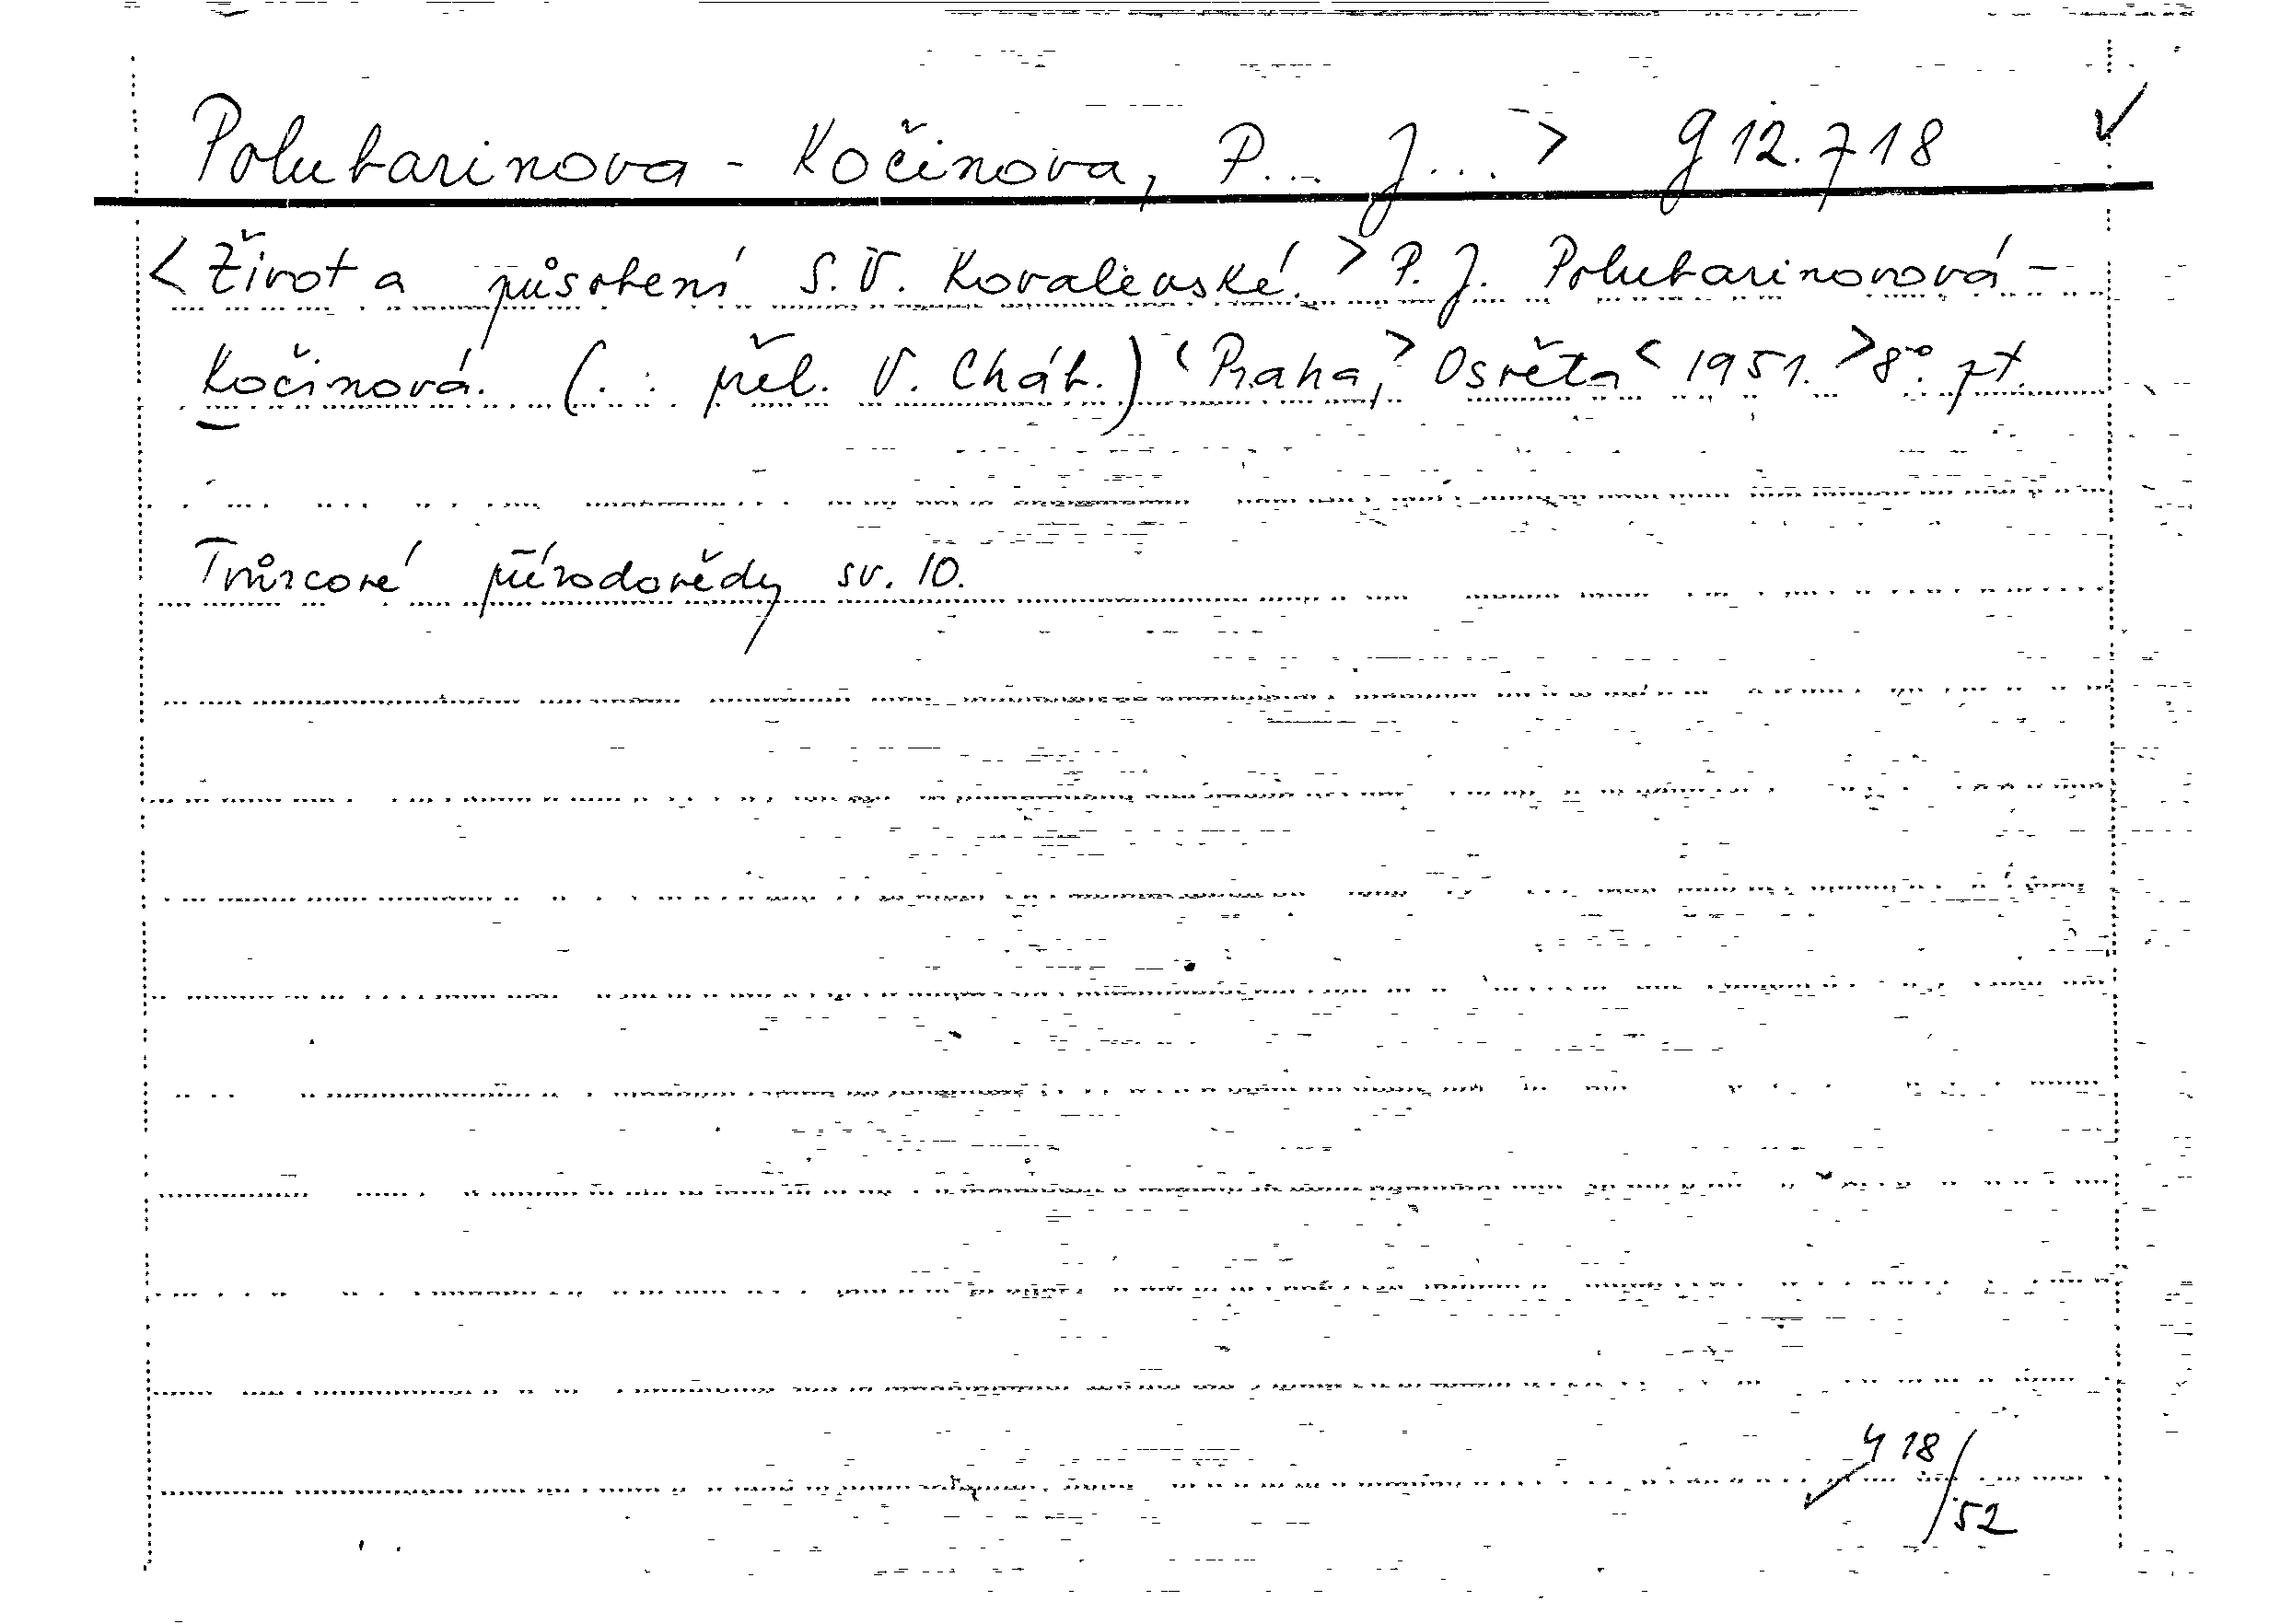 Polubarinova - Kočinova, P... J...> g 12.718
<Život a působení S. V. Kovalevské.> P. J. Polubarinovová-
Kočinová. (. : přel. V. Cháb.) <Praha,> Osvěta <1951.> 8°. pt.
Tvůrcové přírodovědy sv. 10.
418/52